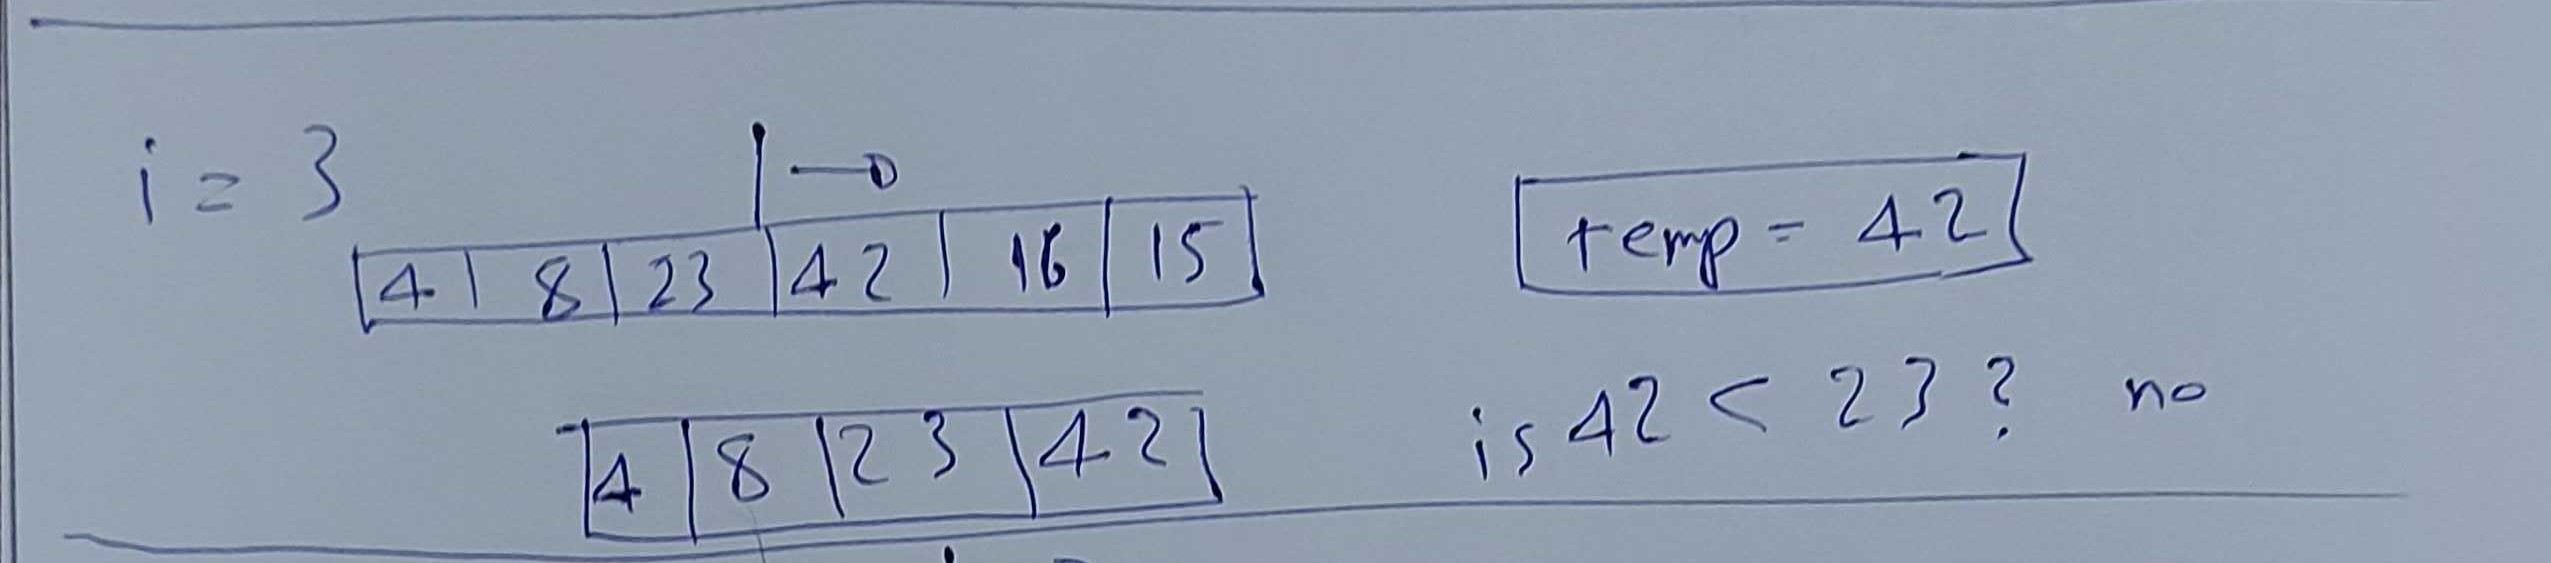 i = 3
4 | 8 | 23 | 42 | 16 | 15
temp = 42
4 | 8 | 23 | 42
is 42 < 23 ? no